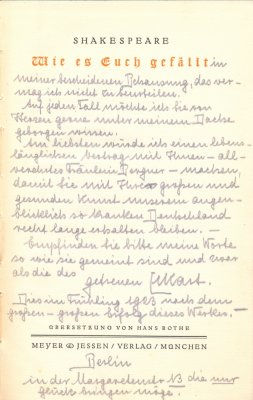 SHAKESPEARE
Wie es Euch gefällt in
meiner bescheidenen Behausung, das ver-
mag ich nicht zu beurteilen.
Auf jeden Fall möchte ich Sie von
Herzen gerne unter meinem Dache
geborgen wissen.
Am liebsten würde ich einen lebens-
länglichen Vertrag mit Ihnen – all-
verehrtes Fräulein Bergner – machen,
damit Sie mit Ihrer großen und
gesunden Kunst unserem augen-
blicklich so kranken Deutschland
recht lange erhalten bleiben. –
Empfinden Sie bitte meine Worte
so wie sie gemeint sind und zwar
als die des
getreuen
Dies im Frühling 1923 nach dem
großen – großen Erfolg dieses Werkes. –
ÜBERSETZUNG VON HANS ROTHE
MEYER & JESSEN / VERLAG / MÜNCHEN
Berlin
in der Margaretenstr 13 die nur
Glück bringen möge.